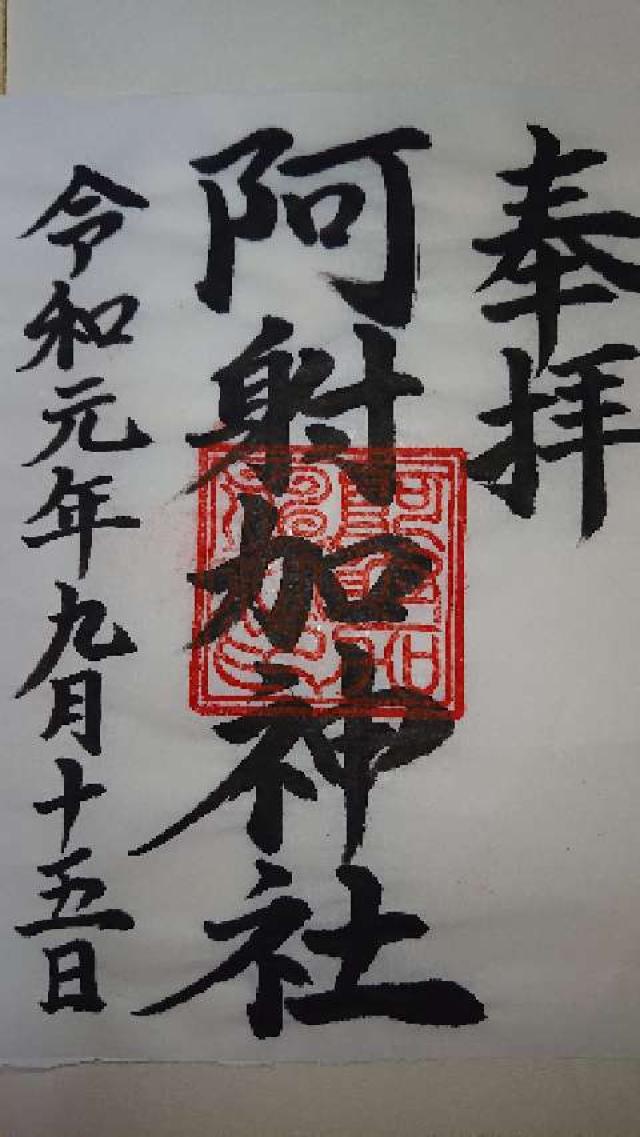 奉拝
阿射加神社
令和元年九月十五日